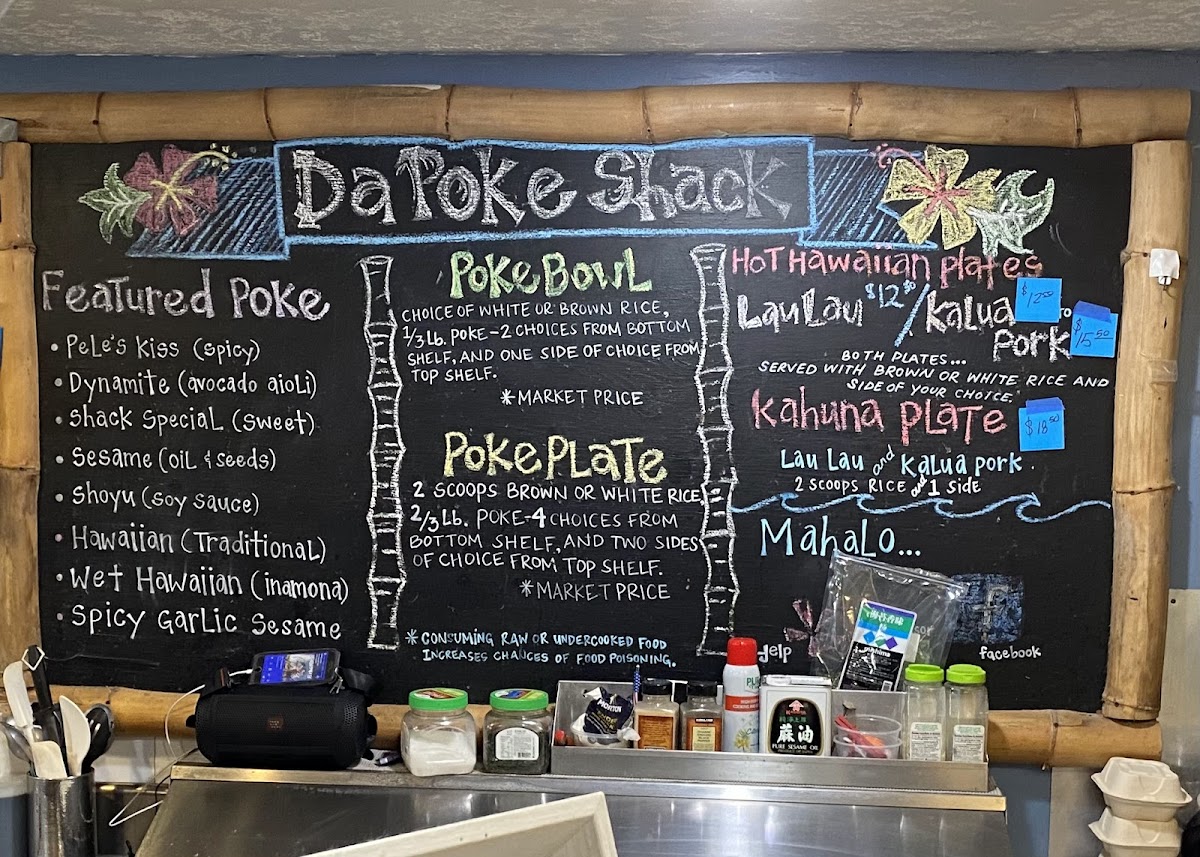 Da Poke Shack
Featured Poke
• Pele's Kiss (spicy)
• Dynamite (avocado aioli)
• Shack Special (sweet)
• Sesame (oil & seeds)
• Shoyu (soy sauce)
• Hawaiian (Traditional)
• Wet Hawaiian (inamona)
• Spicy Garlic Sesame
Poke Bowl
CHOICE OF WHITE OR BROWN RICE,
1/3 Lb. POKE-2 CHOICES FROM BOTTOM
SHELF, AND ONE SIDE OF CHOICE FROM
TOP SHELF.
*MARKET PRICE
Poke Plate
2 SCOOPS BROWN OR WHITE RICE
2/3 Lb. POKE-4 CHOICES FROM
BOTTOM SHELF, AND TWO SIDES
OF CHOICE FROM TOP SHELF.
*MARKET PRICE
* CONSUMING RAW OR UNDERCOOKED FOOD
INCREASES CHANCES OF FOOD POISONING.
Hot Hawaiian Plates
Lau Lau $12.50 / Kalua
Pork $15.50
BOTH PLATES...
SERVED WITH BROWN OR WHITE RICE AND
SIDE OF YOUR CHOICE
Kahuna Plate $18.50
Lau Lau and Kalua Pork
2 SCOOPS RICE and 1 SIDE
Mahalo...
yelp
f
facebook
MORTON
麻油
PURE SESAME OIL